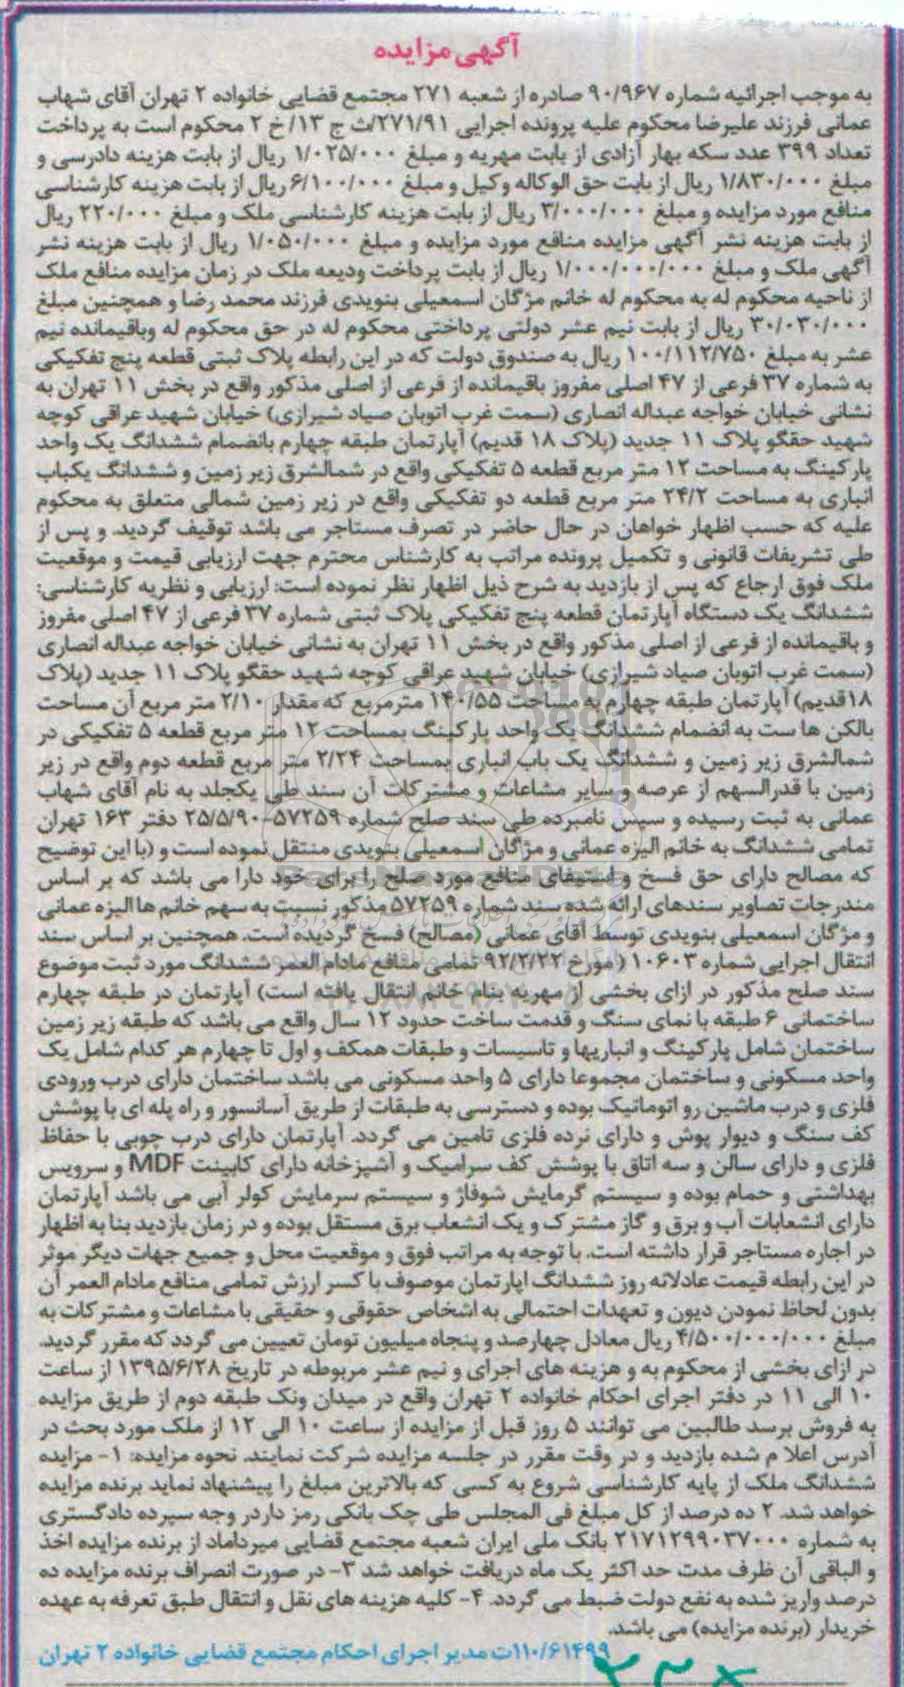 آگهی مزایده
به موجب اجرائیه شماره ۹۰/۹۶۷ صادره از شعبه ۲۷۱ مجتمع قضایی خانواده ۲ تهران آقای شهاب
عمانی فرزند علیرضا محکوم علیه پرونده اجرایی ۲۷۱/۹۱/ث ج ۱۳/ خ ۲ محکوم است به پرداخت
تعداد ۳۹۹ عدد سکه بهار آزادی از بابت مهریه و مبلغ ۱/۰۲۵/۰۰۰ ریال از بابت هزینه دادرسی و
مبلغ ۱/۸۳۰/۰۰۰ ریال از بابت حق الوکاله وکیل و مبلغ ۶/۱۰۰/۰۰۰ ریال از بابت هزینه کارشناسی
منافع مورد مزایده و مبلغ ۳/۰۰۰/۰۰۰ ریال از بابت هزینه کارشناسی ملک و مبلغ ۲۲۰/۰۰۰ ریال
از بابت هزینه نشر آگهی مزایده منافع مورد مزایده و مبلغ ۱/۰۵۰/۰۰۰ ریال از بابت هزینه نشر
آگهی ملک و مبلغ ۱/۰۰۰/۰۰۰/۰۰۰ ریال از بابت پرداخت ودیعه ملک در زمان مزایده منافع ملک
از ناحیه محکوم له به محکوم له خانم مژگان اسمعیلی بنویدی فرزند محمد رضا و همچنین مبلغ
۳۰/۰۳۰/۰۰۰ ریال از بابت نیم عشر دولتی پرداختی محکوم له در حق محکوم له وباقیمانده نیم
عشر به مبلغ ۱۰۰/۱۱۲/۷۵۰ ریال به صندوق دولت که در این رابطه پلاک ثبتی قطعه پنج تفکیکی
به شماره ۳۷ فرعی از ۴۷ اصلی مفروز باقیمانده از فرعی از اصلی مذکور واقع در بخش ۱۱ تهران به
نشانی خیابان خواجه عبداله انصاری (سمت غرب اتوبان صیاد شیرازی) خیابان شهید عراقی کوچه
شهید حقگو پلاک ۱۱ جدید (پلاک ۱۸ قدیم) آپارتمان طبقه چهارم بانضمام ششدانگ یک واحد
پارکینگ به مساحت ۱۲ متر مربع قطعه ۵ تفکیکی واقع در شمالشرق زیر زمین و ششدانگ یکباب
انباری به مساحت ۲۴/۲ متر مربع قطعه دو تفکیکی واقع در زیر زمین شمالی متعلق به محکوم
علیه که حسب اظهار خواهان در حال حاضر در تصرف مستاجر می باشد توقیف گردید. و پس از
طی تشریفات قانونی و تکمیل پرونده مراتب به کارشناس محترم جهت ارزیابی قیمت و موقعیت
ملک فوق ارجاع که پس از بازدید به شرح ذیل اظهار نظر نموده است: ارزیابی و نظریه کارشناسی:
ششدانگ یک دستگاه آپارتمان قطعه پنج تفکیکی پلاک ثبتی شماره ۳۷ فرعی از ۴۷ اصلی مفروز
و باقیمانده از فرعی از اصلی مذکور واقع در بخش ۱۱ تهران به نشانی خیابان خواجه عبداله انصاری
(سمت غرب اتوبان صیاد شیرازی) خیابان شهید عراقی کوچه شهید حقگو پلاک ۱۱ جدید (پلاک
۱۸قدیم) آپارتمان طبقه چهارم به مساحت ۱۴۰/۵۵ مترمربع که مقدار ۲/۱۰ متر مربع آن مساحت
بالکن ها ست به انضمام ششدانگ یک واحد پارکینگ بمساحت ۱۲ متر مربع قطعه ۵ تفکیکی در
شمالشرق زیر زمین و ششدانگ یک باب انباری بمساحت ۲/۲۴ متر مربع قطعه دوم واقع در زیر
زمین با قدرالسهم از عرصه و سایر مشاعات و مشترکات آن سند طی یکجلد به نام آقای شهاب
عمانی به ثبت رسیده و سپس نامبرده طی سند صلح شماره ۵۷۲۵۹-۲۵/۵/۹۰ دفتر ۱۶۳ تهران
تمامی ششدانگ به خانم الیزه عمانی و مژگان اسمعیلی بنویدی منتقل نموده است و (با این توضیح
که مصالح دارای حق فسخ و استیفای منافع مورد صلح را برای خود دارا می باشد که بر اساس
مندرجات تصاویر سندهای ارائه شده سند شماره ۵۷۲۵۹ مذکور نسبت به سهم خانم ها الیزه عمانی
و مژگان اسمعیلی بنویدی توسط آقای عمانی (مصالح) فسخ گردیده است. همچنین بر اساس سند
انتقال اجرایی شماره ۱۰۶۰۳ (مورخ ۹۲/۲/۲۲ تمامی منافع مادام العمر ششدانگ مورد ثبت موضوع
سند صلح مذکور در ازای بخشی از مهریه بنام خانم انتقال یافته است) آپارتمان در طبقه چهارم
ساختمانی ۶ طبقه با نمای سنگ و قدمت ساخت حدود ۱۲ سال واقع می باشد که طبقه زیر زمین
ساختمان شامل پارکینگ و انباریها و تاسیسات و طبقات همکف و اول تا چهارم هر کدام شامل یک
واحد مسکونی و ساختمان مجموعا دارای ۵ واحد مسکونی می باشد ساختمان دارای درب ورودی
فلزی و درب ماشین رو اتوماتیک بوده و دسترسی به طبقات از طریق آسانسور و راه پله ای با پوشش
کف سنگ و دیوار پوش و دارای نرده فلزی تامین می گردد. آپارتمان دارای درب چوبی با حفاظ
فلزی و دارای سالن و سه اتاق با پوشش کف سرامیک و آشپزخانه دارای کابینت MDF و سرویس
بهداشتی و حمام بوده و سیستم گرمایش شوفاژ و سیستم سرمایش کولر آبی می باشد آپارتمان
دارای انشعابات آب و برق و گاز مشترک و یک انشعاب برق مستقل بوده و در زمان بازدید بنا به اظهار
در اجاره مستاجر قرار داشته است. با توجه به مراتب فوق و موقعیت محل و جمیع جهات دیگر موثر
در این رابطه قیمت عادلانه روز ششدانگ اپارتمان موصوف با کسر ارزش تمامی منافع مادام العمر آن
بدون لحاظ نمودن دیون و تعهدات احتمالی به اشخاص حقوقی و حقیقی با مشاعات و مشترکات به
مبلغ ۴/۵۰۰/۰۰۰/۰۰۰ ریال معادل چهارصد و پنجاه میلیون تومان تعیین می گردد که مقرر گردید.
در ازای بخشی از محکوم به و هزینه های اجرای و نیم عشر مربوطه در تاریخ ۱۳۹۵/۶/۲۸ از ساعت
۱۰ الی ۱۱ در دفتر اجرای احکام خانواده ۲ تهران واقع در میدان ونک طبقه دوم از طریق مزایده
به فروش برسد طالبین می توانند ۵ روز قبل از مزایده از ساعت ۱۰ الی ۱۲ از ملک مورد بحث در
آدرس اعلا م شده بازدید و در وقت مقرر در جلسه مزایده شرکت نمایند. نحوه مزایده: ۱- مزایده
ششدانگ ملک از پایه کارشناسی شروع به کسی که بالاترین مبلغ را پیشنهاد نماید برنده مزایده
خواهد شد. ۲ ده درصد از کل مبلغ فی المجلس طی چک بانکی رمز داردر وجه سپرده دادگستری
به شماره ۲۱۷۱۲۹۹۰۳۷۰۰۰ بانک ملی ایران شعبه مجتمع قضایی میرداماد از برنده مزایده اخذ
و الباقی آن ظرف مدت حد اکثر یک ماه دریافت خواهد شد ۳- در صورت انصراف برنده مزایده ده
درصد واریز شده به نفع دولت ضبط می گردد. ۴- کلیه هزینه های نقل و انتقال طبق تعرفه به عهده
خریدار (برنده مزایده) می باشد.
۱۱۰/۶۱۴۹۹ت مدیر اجرای احکام مجتمع قضایی خانواده ۲ تهران